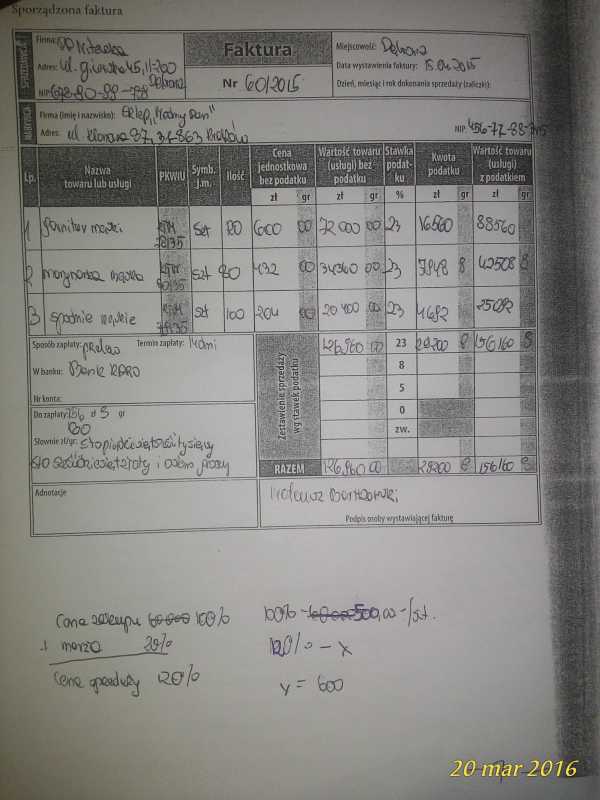 Sporządzona faktura
SPRZEDAWCA
Firma:
Adres: ul. 45, 11-200
NIP:
Faktura
Nr 60/2015
Miejscowość:
Data wystawienia faktury: 15.04.2015
Dzień, miesiąc i rok dokonania sprzedaży (zaliczki):
NABYWCA
Firma (imię i nazwisko): Sklep „Modny Pan"
Adres: ul. Klonowa 87, 31-863 Kraków
NIP 456-77-88-
Lp. Nazwa towaru lub usługi PKWiU Symb. j.m. Ilość Cena jednostkowa bez podatku Wartość towaru (usługi) bez podatku Stawka podat-ku Kwota podatku Wartość towaru (usługi) z podatkiem
zł gr zł gr % zł gr zł gr
1 Garnitur męski szt 120 600 00 72 000 00 23 16560 88560
2 marynarka męska szt 80 432 00 34560 00 23 7948 8 42508 8
3 spodnie męskie szt 100 204 00 20 400 00 23 4692 25092
Sposób zapłaty: przelew Termin zapłaty: 14 dni
W banku: Bank
Nr konta:
Do zapłaty: zł gr
Słownie zł/gr: sto pięćdziesiąt sześć tysięcy
sto sześćdziesiąt złoty i osiem groszy
Zestawienie sprzedaży wg stawek podatku
126.960 00 23 29200 8 156160 8
8
5
0
zw.
RAZEM 126.960 00 29200 8 156160 8
Adnotacje
Podpis osoby wystawiającej fakturę
Cena zakupu 100% 100% - 500,00 -/szt.
+ marża 20% 120% - x
Cena sprzedaży 120% x = 600
20 mar 2016